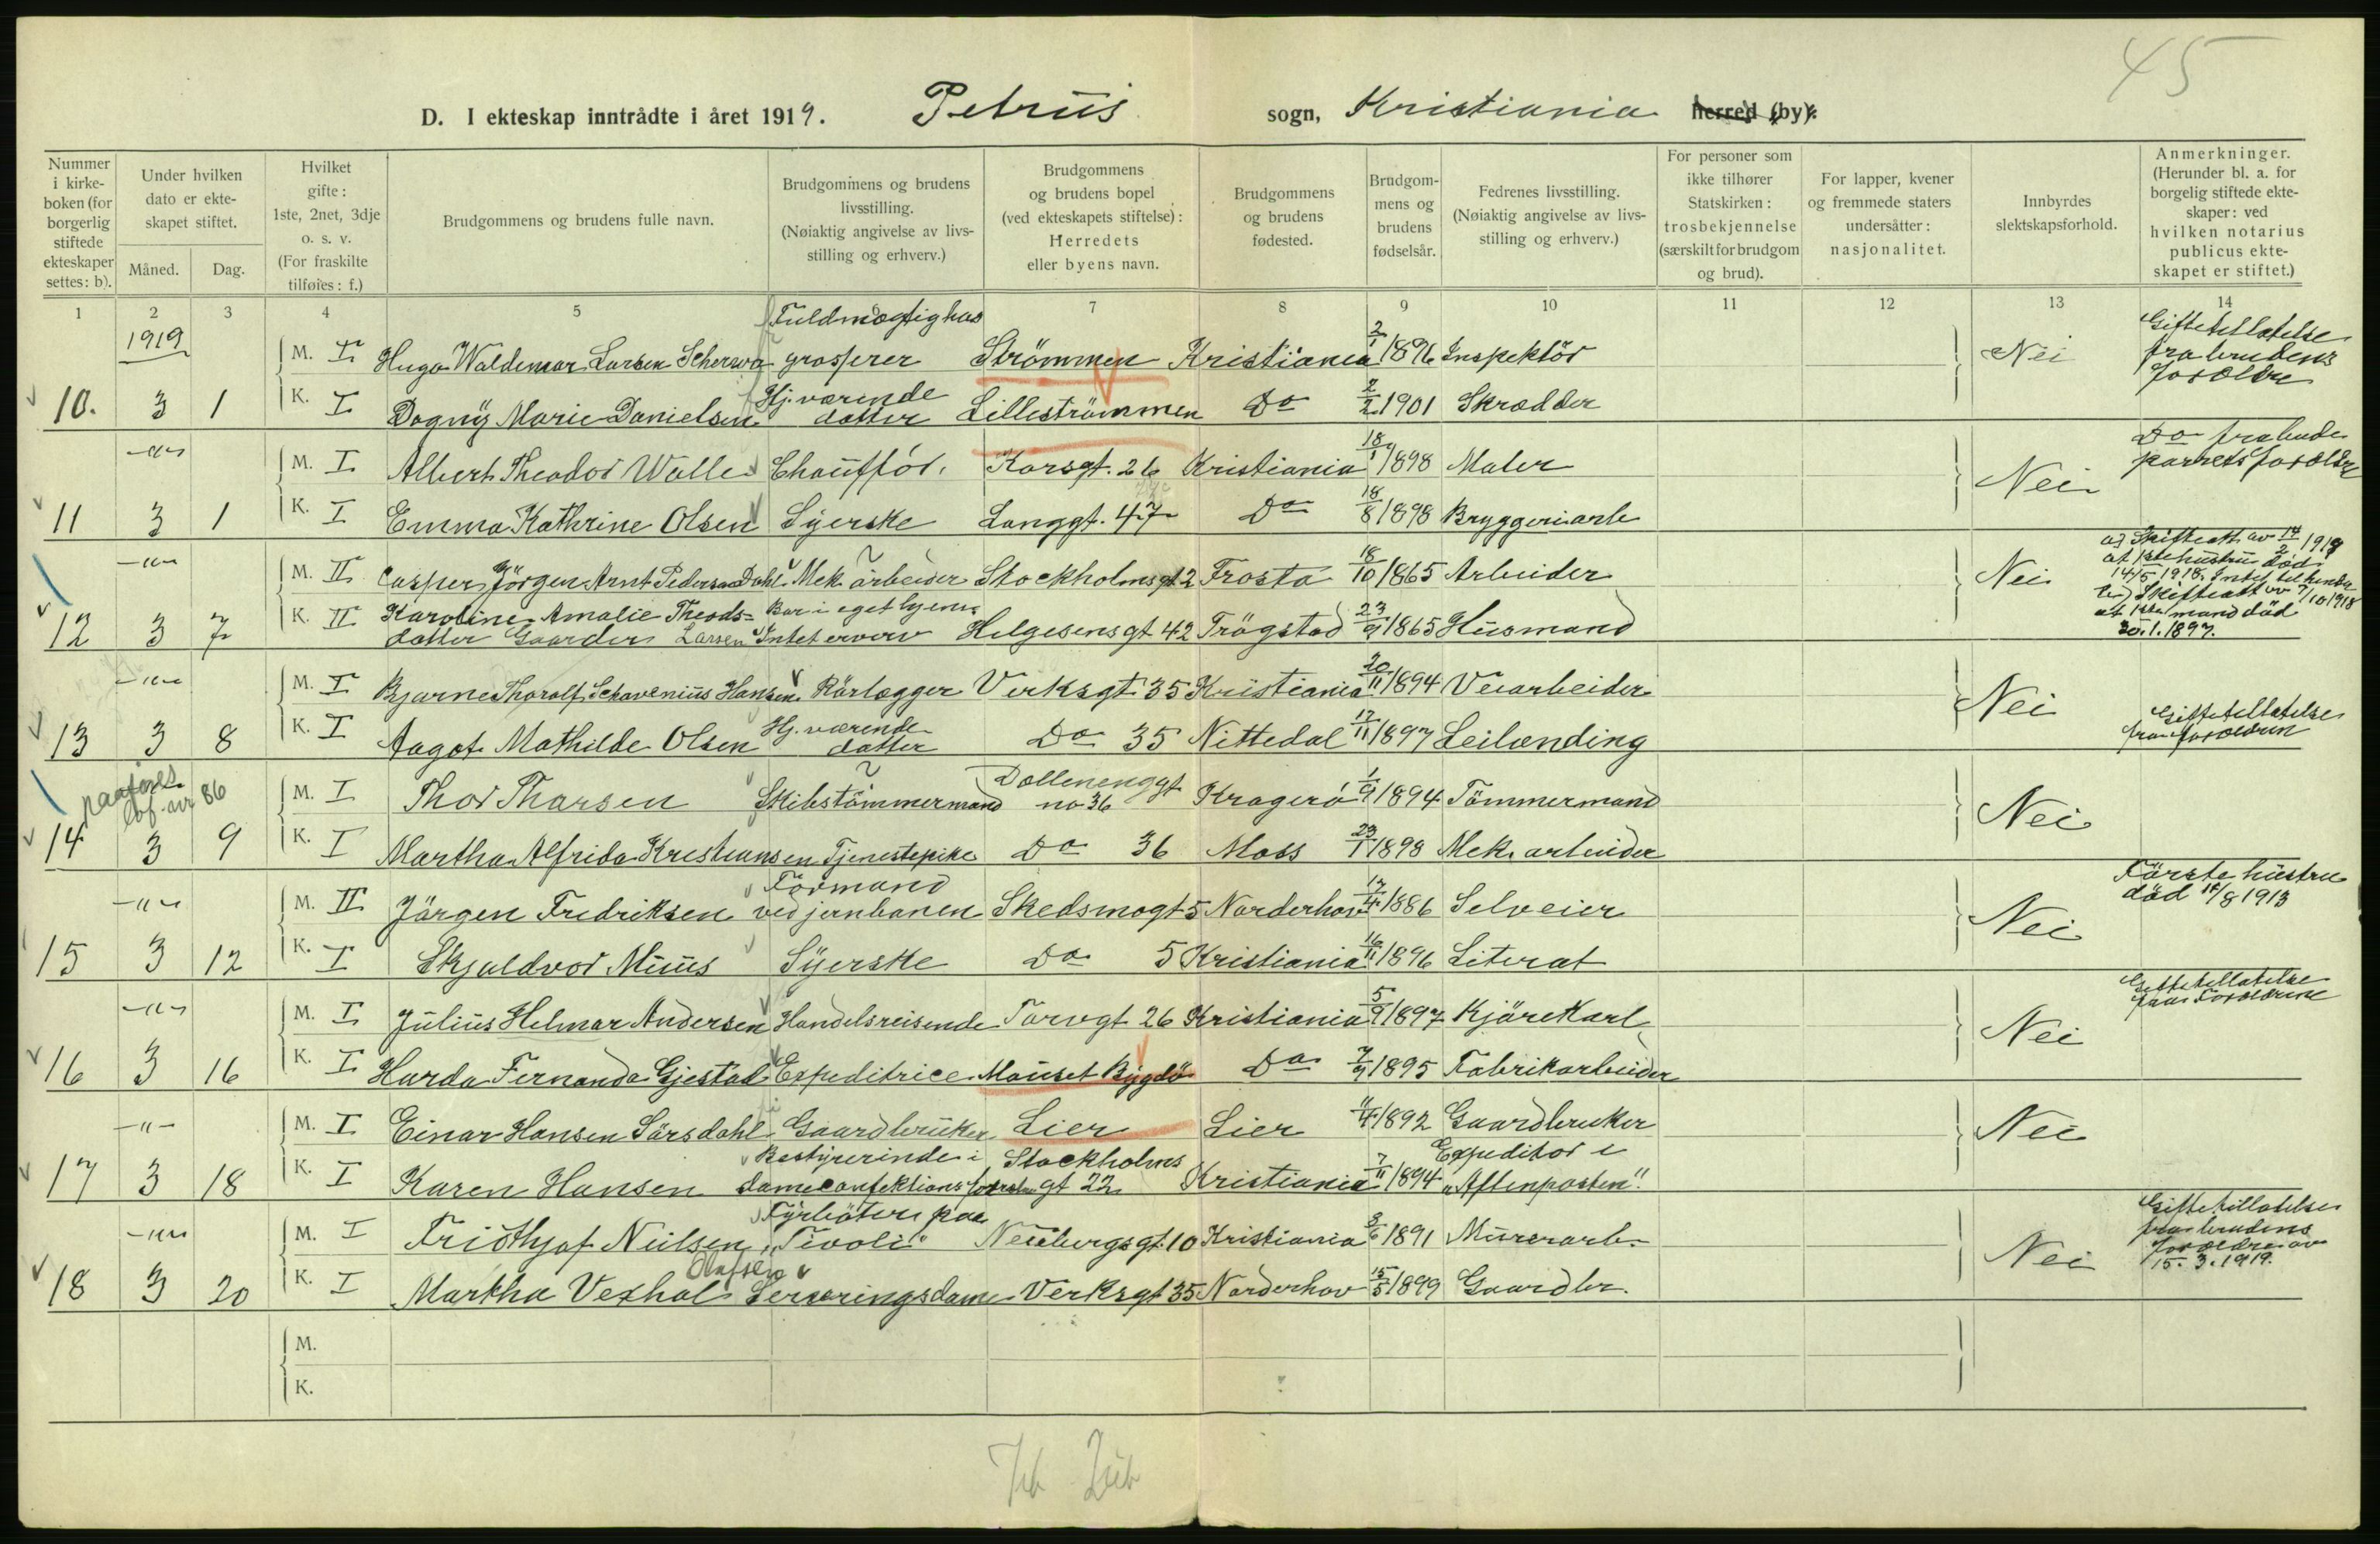 45
D. I ekteskap inntrådte i året 1919. Petrus sogn, Kristiania herred (by).
Nummer i kirkeboken (for borgerlig stiftede ekteskaper settes: b).
Under hvilken dato er ekteskapet stiftet.
Måned. Dag.
Hvilket gifte: 1ste, 2net, 3dje o. s. v. (For fraskilte tilføies: f.)
Brudgommens og brudens fulle navn.
Brudgommens og brudens livsstilling. (Nøiaktig angivelse av livsstilling og erhverv.)
Brudgommens og brudens bopel (ved ekteskapets stiftelse): Herredets eller byens navn.
Brudgommens og brudens fødested.
Brudgommens og brudens fødselsår.
Fedrenes livsstilling. (Nøiaktig angivelse av livsstilling og erhverv.)
For personer som ikke tilhører Statskirken: trosbekjennelse (særskilt for brudgom og brud).
For lapper, kvener og fremmede staters undersåtter: nasjonalitet.
Innbyrdes slektskapsforhold.
Anmerkninger. (Herunder bl. a. for borgelig stiftede ekteskaper: ved hvilken notarius publicus ekteskapet er stiftet.)
1 2 3 4 5 7 8 9 10 11 12 13 14
1919
M. I Hugo Waldemar Larsen Fuldmægtig hos grosserer Strömmen Kristiania 2/1 1896 Inspektör Nei Giftetillatelse fra brudens forældre
10. 3 1 K. I Dagny Marie Danielsen Hj. værende datter Lilleströmmen Do 2/2 1901 Skrædder
-"- M. I Albert Theodor Wålle Chaufför. Korsgt. 26 Kristiania 18/1 1898 Maler Nei Do fra brudeparrets forældre
11 3 1 K. I Emma Kathrine Olsen Syerske Langgt. 47 Do 18/8 1898 Bryggeriarb
-"- M. II Casper Jörgen Arnt Pedersen Dahl Mek. arbeider Stockholmsgt 2 Frosta 18/10 1865 Arbeider Nei Skifteatt av 14/2 1919 at 1ste hustru död 14/5 1918.
12 3 7 K. II Karoline Amalie Theodsdatter Gaarder Larsen Bor i eget hjem Intet erverv Helgesensgt 42 Trögstad 23/9 1865 Husmand Skifteatt av 7/10 1918 at 1ste mand död 30.1.1897.
-"- M. I Bjarne Thoralf Schavenius Hansen Rörlægger Verksgt 35 Kristiania 20/11 1894 Veiarbeider Nei
13 3 8 K. I Aagot Mathilde Olsen Hj. værende datter Do 35 Nittedal 17/11 1897 Leilænding Giftetillatelse fra forældren
paaföres lbf. nr 86
M. I Thor Tharsen Skibstömmermand Dælenenggt no 36 Kragerö 1/9 1894 Tömmermand Nei
14 3 9 K. I Martha Alfrida Kristiansen Tjenestepike Do 36 Moss 23/1 1898 Mek. arbeider
-"- M. II Jörgen Fredriksen Formand ved jernbanen Skedsmogt 5 Norderhov 17/4 1886 Selveier Nei Förste hustru död 15/8 1913
15 3 12 K. I Skjaldvor Muus Syerske Do 5 Kristiania 16/11 1896 Literat
-"- M. I Julius Helmar Andersen Handelsreisende Torvgt 26 Kristiania 5/9 1897 Kjörekarl Nei Giftetillatelse fra Forældrene
16 3 16 K. I Harda Fernanda Gjestad Expeditrice Mauset Bygdö Do 7/9 1895 Fabrikarbeider
-"- M. I Einar Hansen Sörsdahl Gaardbruker Lier Lier 11/4 1892 Gaardbruker Nei
17 3 18 K. I Karen Hansen Bestyrerinde i damekonfektionsforretn Stockholmsgt 22 Kristiania 7/11 1894 Expeditör i "Aftenposten"
-"- M. I Fridthjof Nielsen Fyrböter paa "Tivoli" Neubergsgt. 10 Kristiania 3/6 1891 Murerarb. Nei Giftetillatelse fra brudens forældre av 15. 3. 1919.
18 3 20 K. I Martha Vexhal Olafsen Serveringsdame Verksgt 35 Norderhov 15/5 1899 Gaardbr.
M.
K.